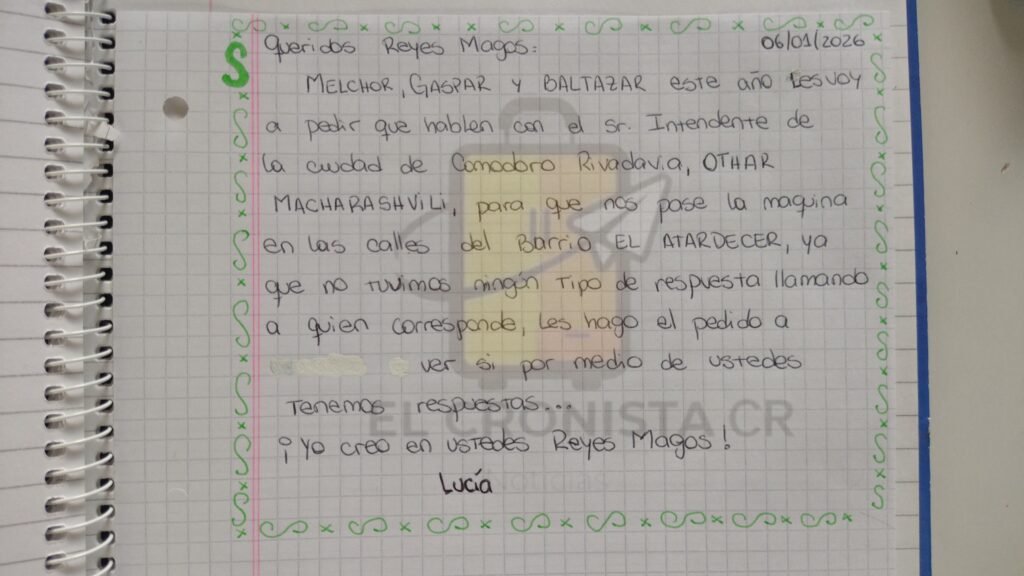 Queridos Reyes Magos: 06/01/2026
MELCHOR, GASPAR Y BALTAZAR este año Les voy
a pedir que hablen con el sr. Intendente de
la ciudad de Comodoro Rivadavia, OTHAR
MACHARASHVILI, para que nos pase la maquina
en las calles del Barrio EL ATARDECER, ya
que no tuvimos ningún tipo de respuesta llamando
a quien corresponde, Les hago el pedido a
ver si por medio de ustedes
Tenemos respuestas...
EL CRONISTA CR
¡Yo creo en ustedes Reyes Magos!
Lucía
Noticias